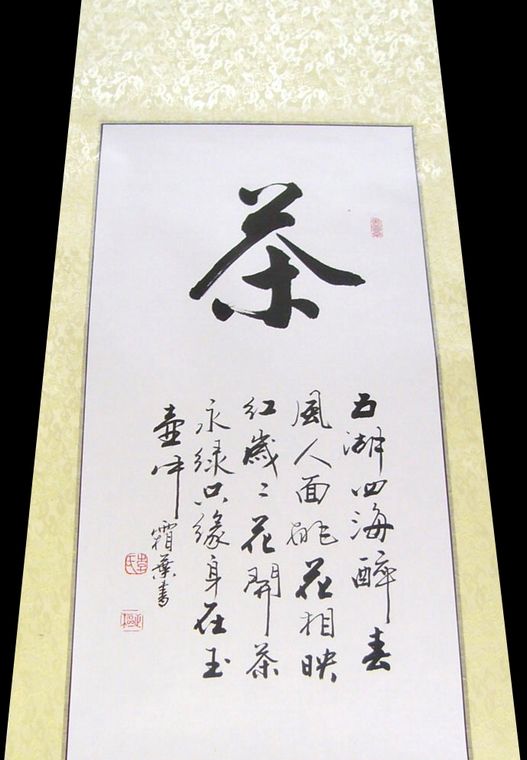 茶
五湖四海醉春
風人面桃花相映
紅歲々花開茶
永綠只緣身在玉
壺中 霜葉書